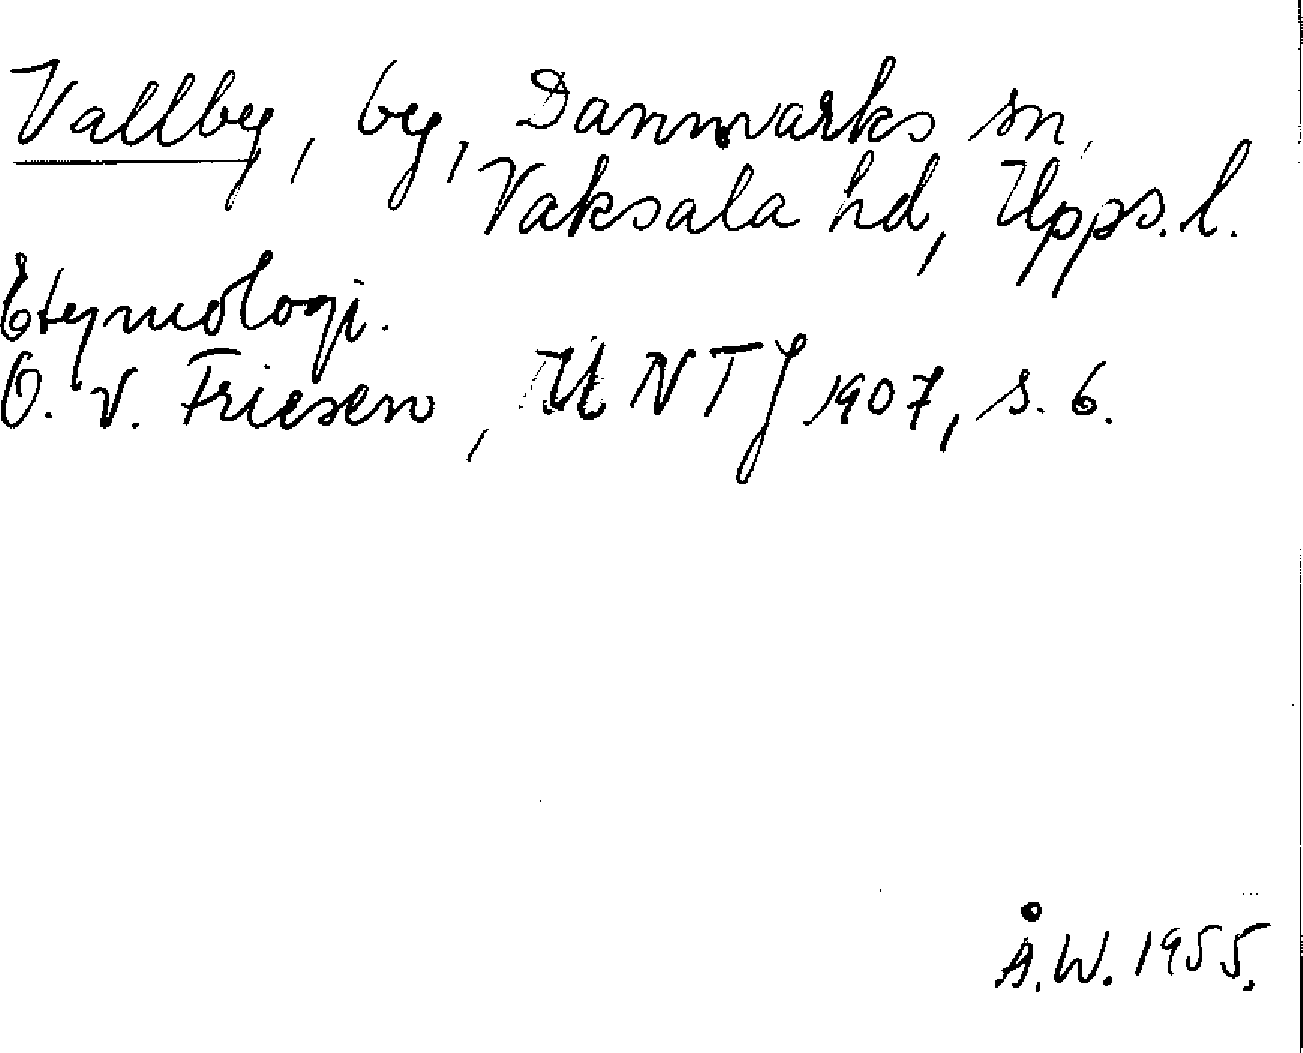 Vallby, by, Danmarks sn,
Vaksala hd, Upps. l.
Etymologi.
O. v. Friesen, UNTJ 1907, s. 6.
Å.W. 1955.